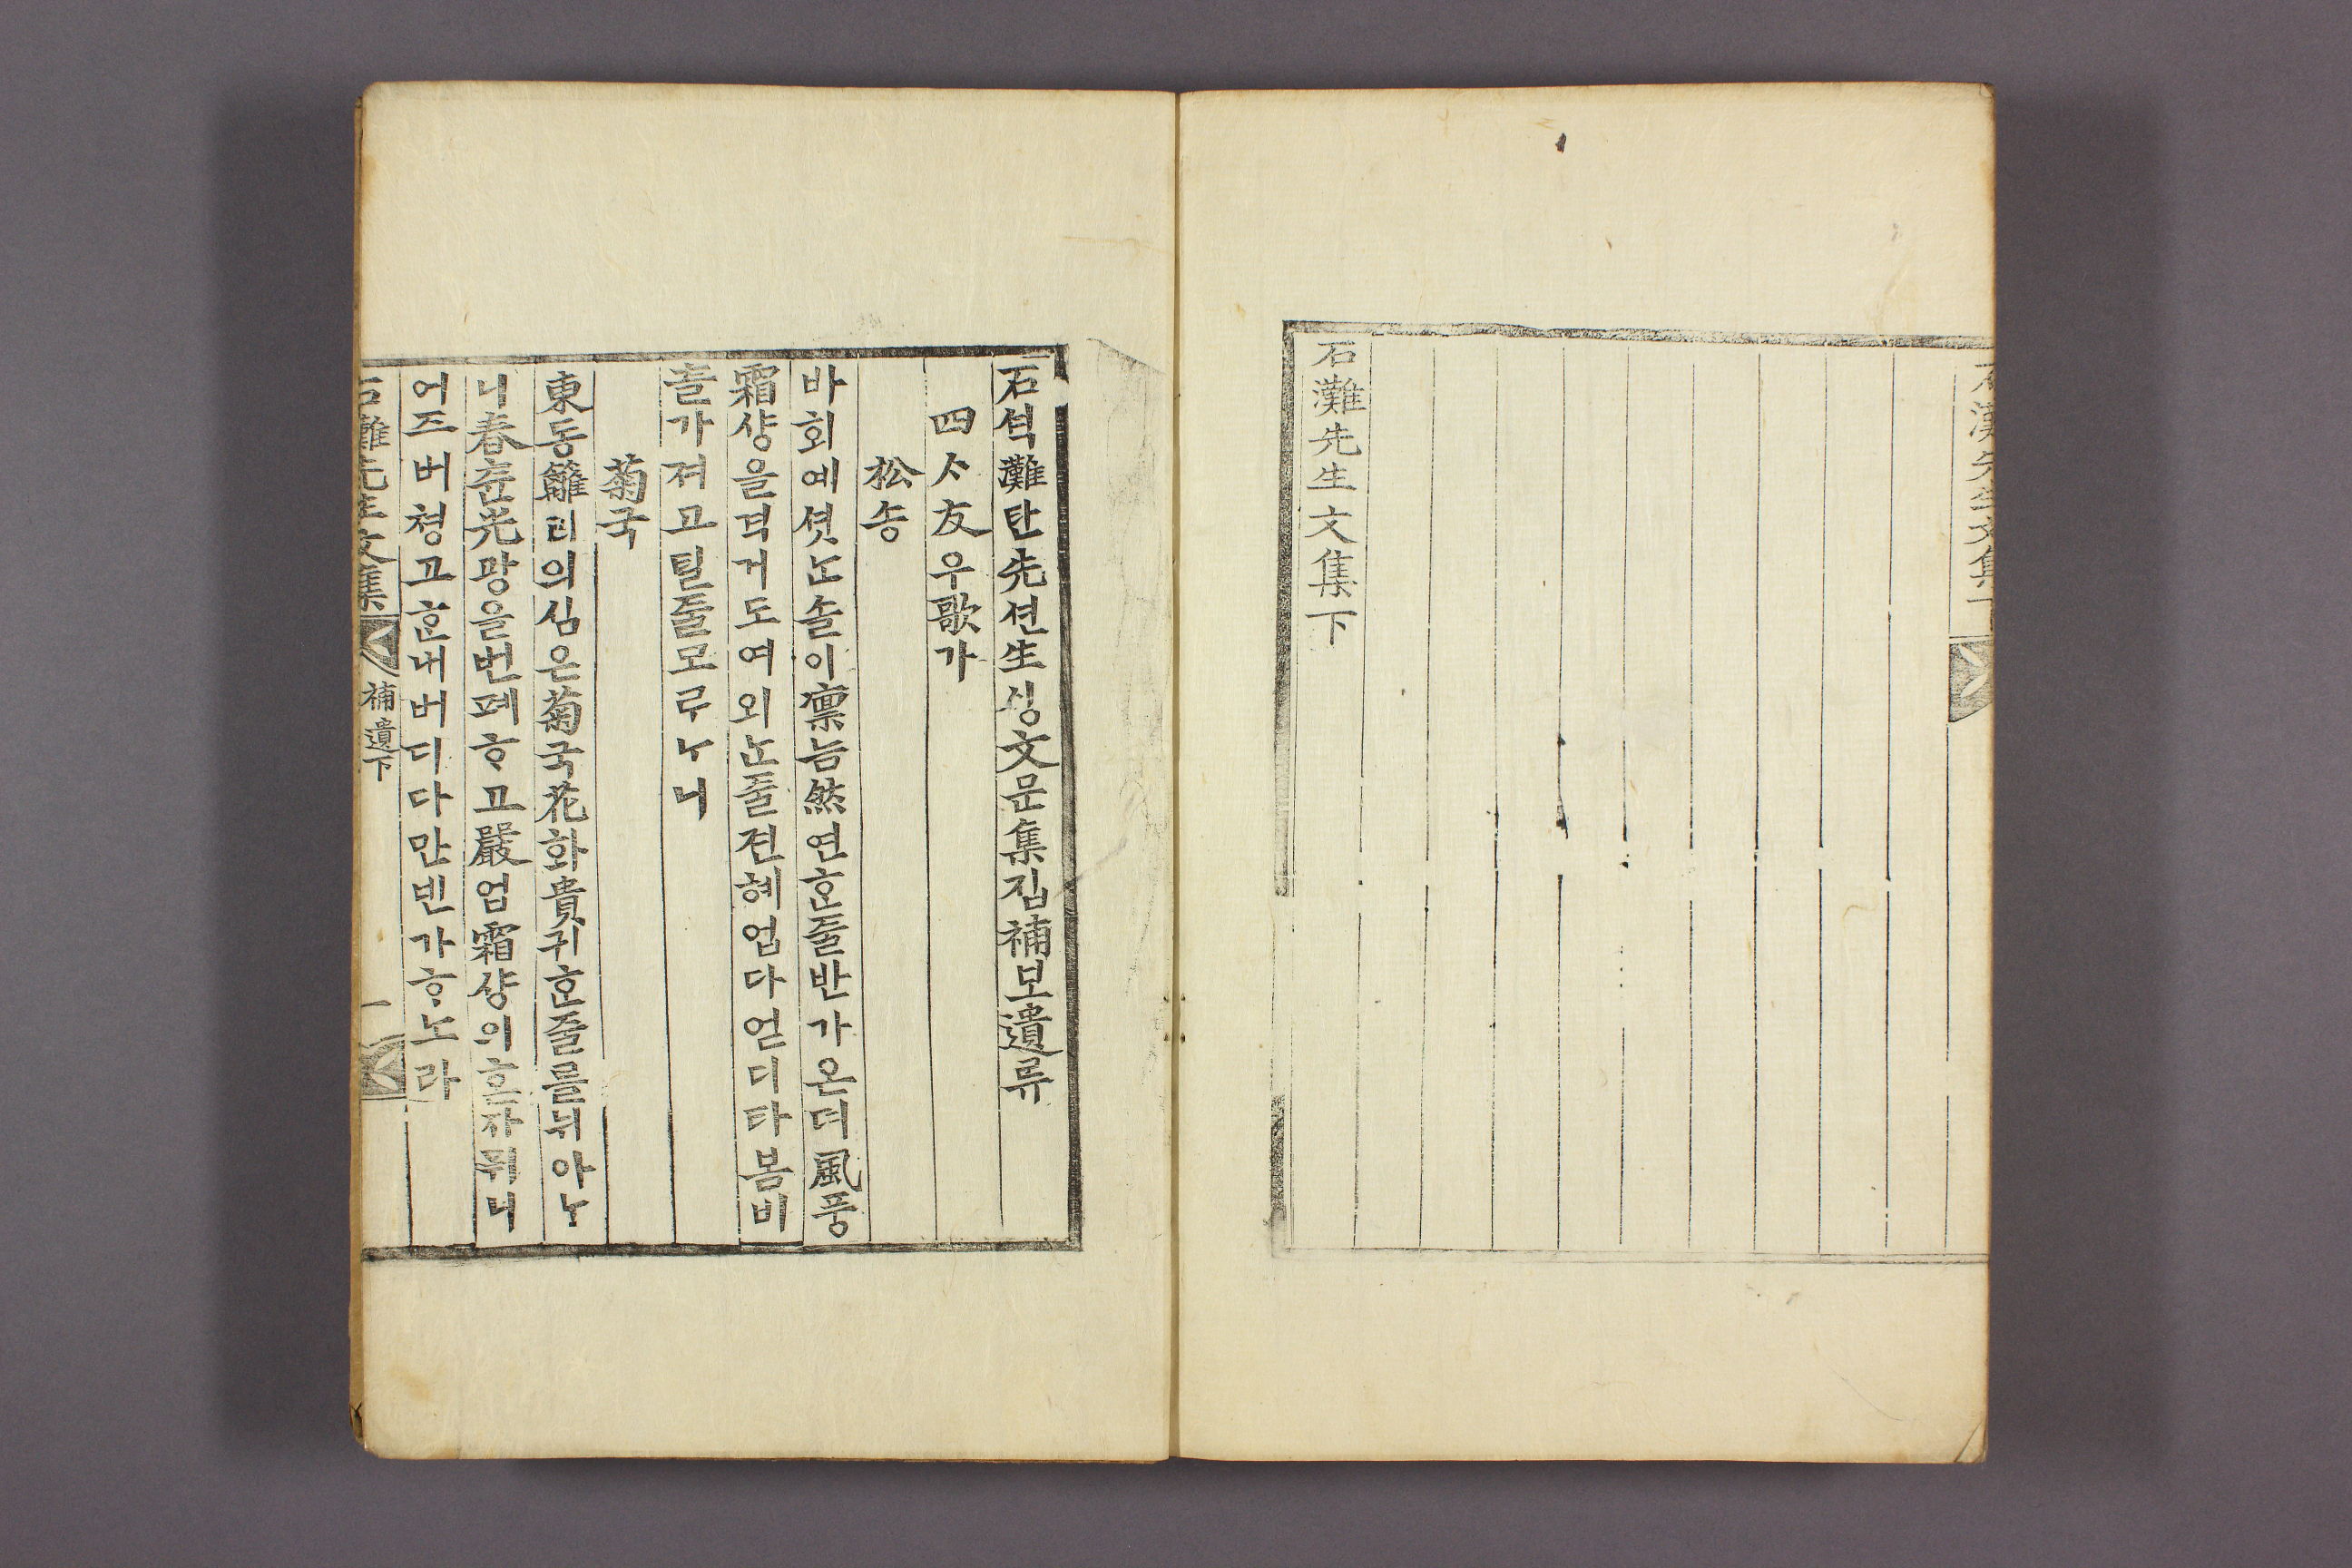 石灘先生文集下
石灘先生文集下
石셕灘탄先션生싱文문集집補보遺류
四ᄉᆞ友우歌가
松송
바회예셧ᄂᆞᆫ솔이凛늠然연ᄒᆞᆫ줄반가온뎌風풍
霜샹을격거도여외ᄂᆞᆫ줄젼혜업다얻디타봄비
ᄎᆞᆯ가져고틸줄모ᄅᆞᄂᆞ니
菊국
東동籬리의심은菊국花화貴귀ᄒᆞᆫ줄를뉘아ᄂᆞ
니春츈光광을번폐ᄒᆞ고嚴엄霜샹의혼자퓌니
어즈버쳥고ᄒᆞᆫ내버디다만녠가ᄒᆞ노라
石灘先生文集 補遺下 一